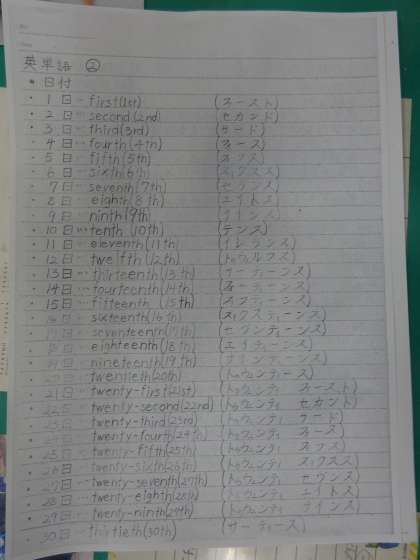 英単語 ②
・日付
・1日…first(1st) (ファースト)
・2日…second(2nd) (セカンド)
・3日…third(3rd) (サード)
・4日…fourth(4th) (フォース)
・5日…fifth(5th)
・6日…sixth(6th)
・7日…seventh(7th) (セブンス)
・8日…eighth(8th) (エイトス)
・9日…ninth(9th) (ナインス)
・10日…tenth(10th) (テンス)
・11日…eleventh(11th) (イレブンス)
・12日…twelfth(12th) (トゥウェルフス)
・13日…thirteenth(13th) (サーティーンス)
・14日…fourteenth(14th) (フォーティーンス)
・15日…fifteenth(15th) (フィフティーンス)
・16日…sixteenth(16th) (シィクスティーンス)
・17日…seventeenth(17th) (セブンティーンス)
・18日…eighteenth(18th) (エイティーンス)
・19日…nineteenth(19th) (ナインティーンス)
twentieth(20th)
・21日…twenty-first(21st) (トゥウェンティ ファースト)
・22日…twenty-second(22nd) (トゥウェンティ セカンド)
・23日…twenty-third(23rd) (トゥウェンティ サード)
twenty-fourth(24th) (トゥウェンティ フォース)
・25日…twenty-fifth(25th) (トゥウェンティ
・26日…twenty-sixth(26th) (トゥウェンティ
・27日…twenty-seventh(27th) (トゥウェンティ セブンス)
・28日…twenty-eighth(28th) (トゥウェンティ エイトス)
・29日…twenty-ninth(29th) (トゥウェンティ ナインス)
・30日…thirtieth(30th) (サーティース)